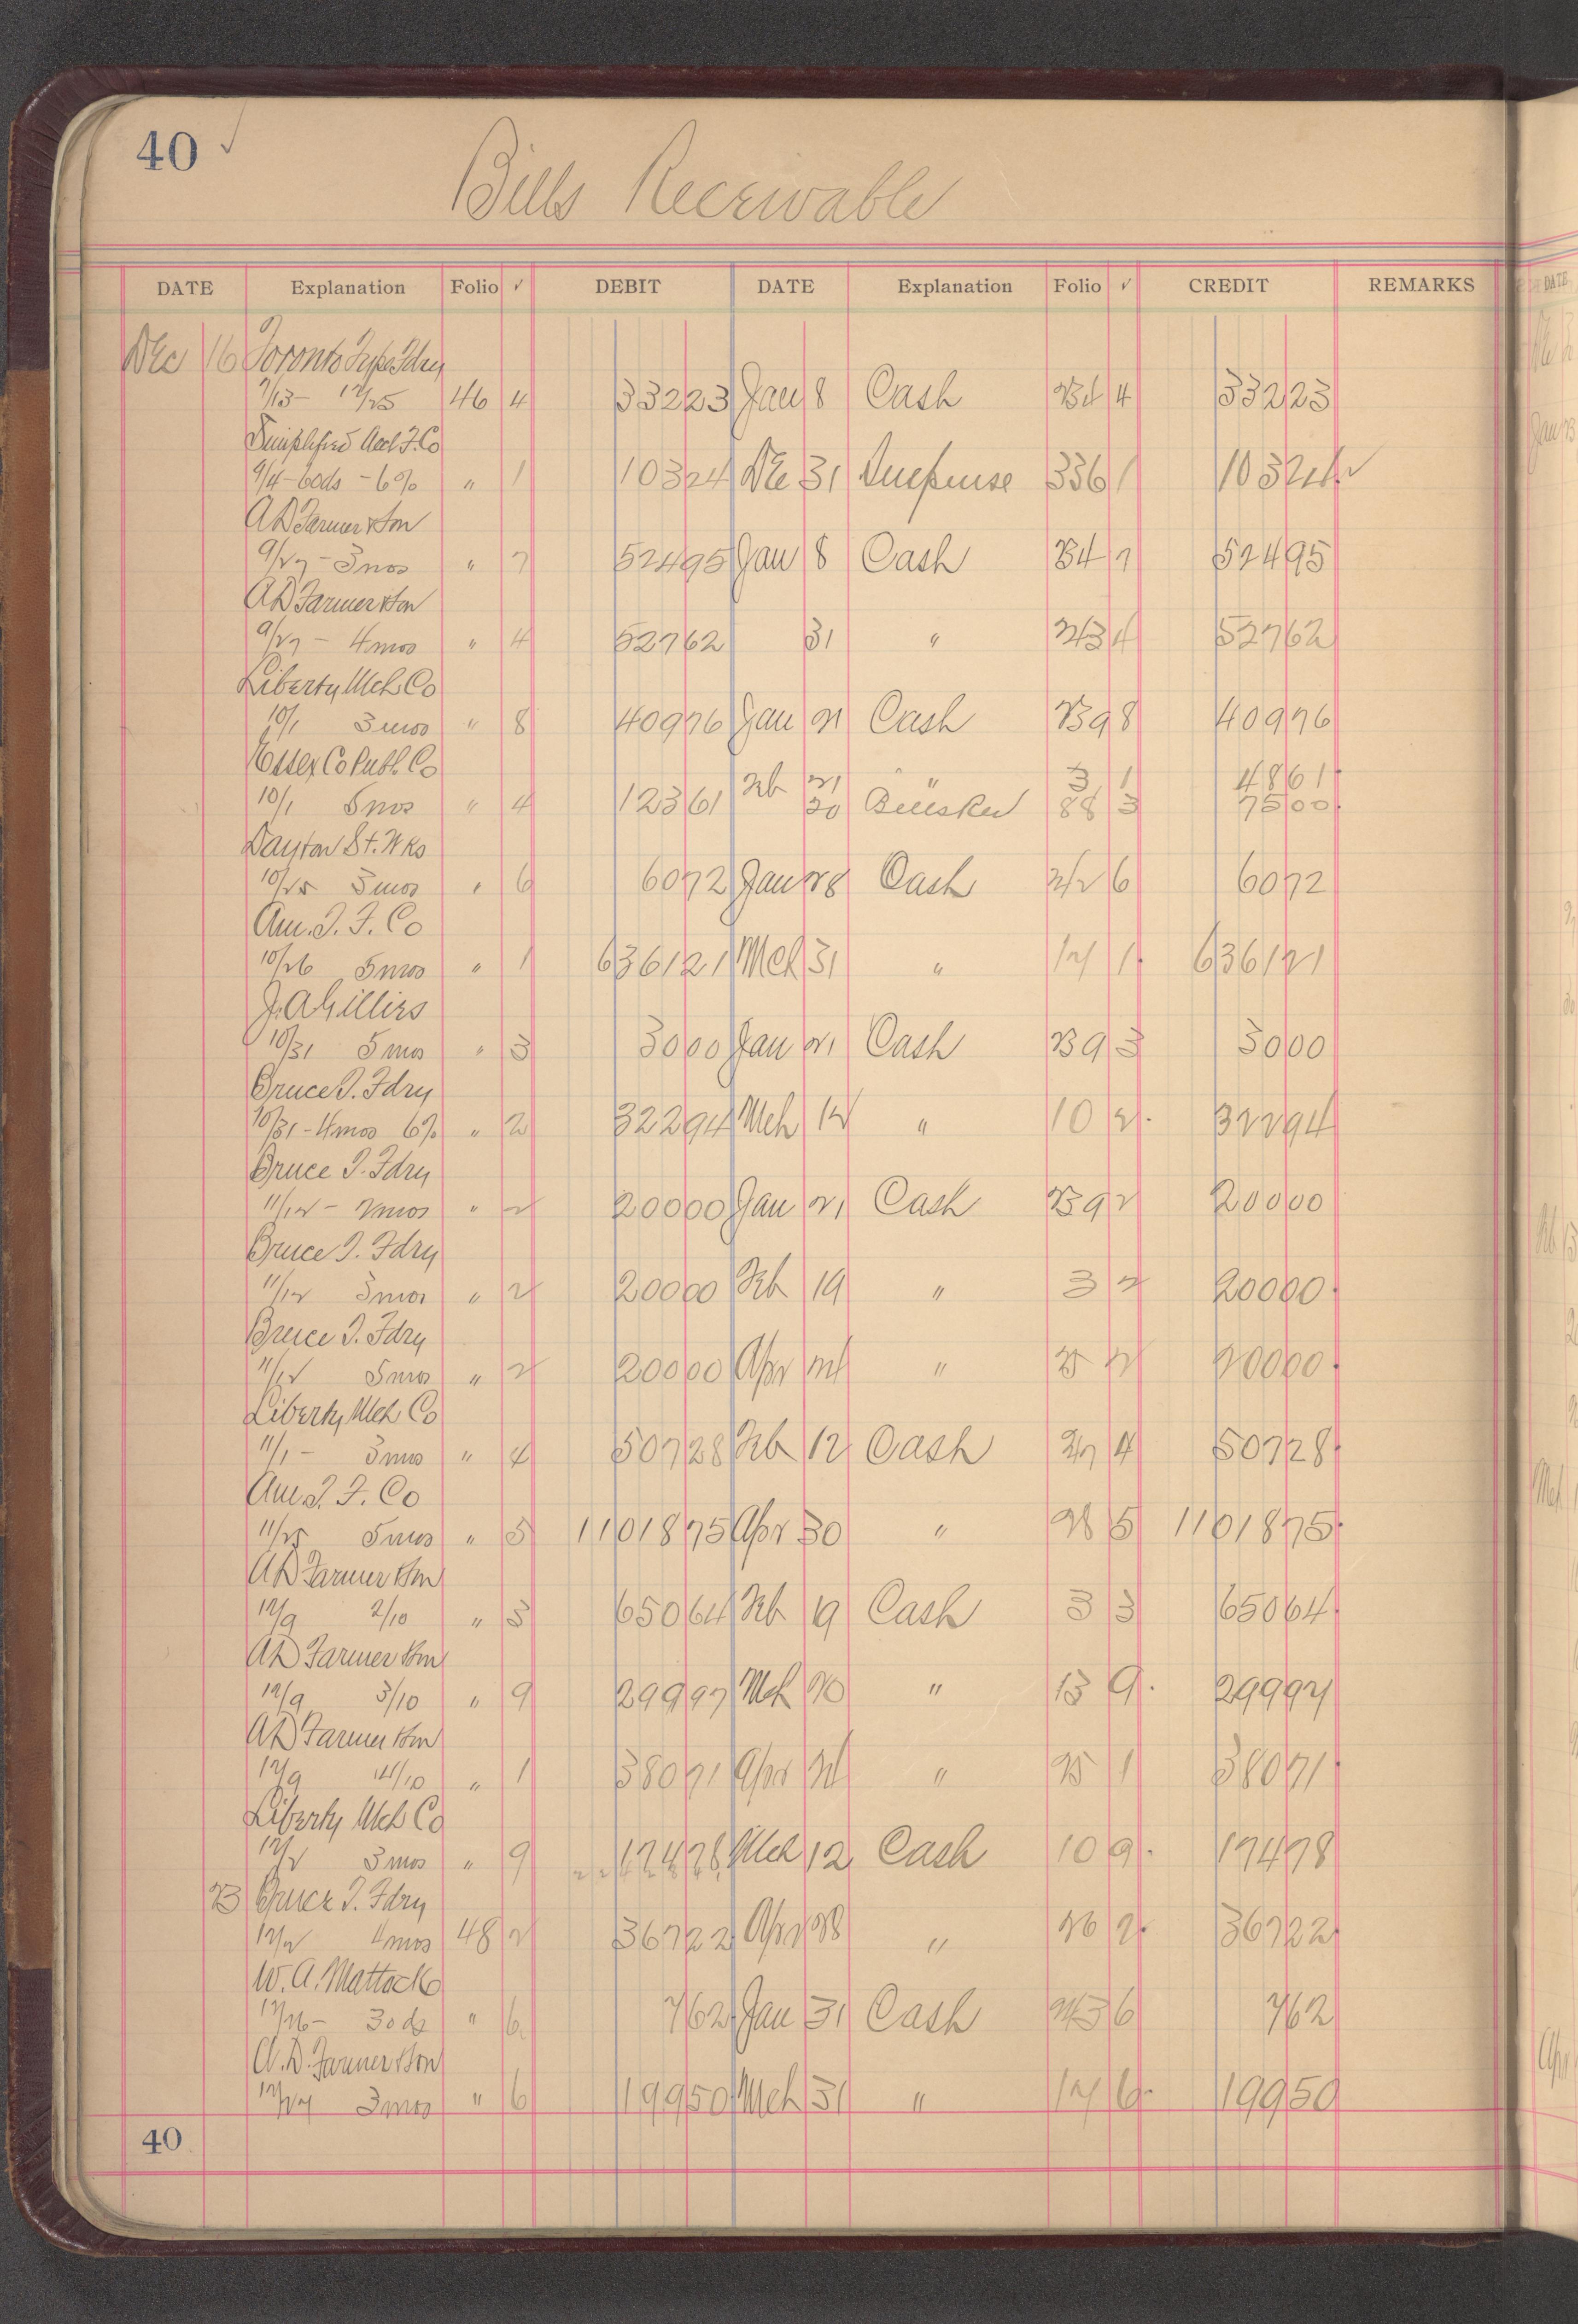 40 ✓
Bills Receivable
DATE Explanation Folio ✓ DEBIT DATE Explanation Folio ✓ CREDIT REMARKS
Dec 16 Toronto Type Fdry
9/13- 12/25 46 4 332 23 Jan 8 Cash 234 4 332 23
Simplified Acct F. Co
9/4-60ds-6% " 1 103 24 Dec 31 Suspense 336 1 103 24 ✓
A D Farmer & Son
9/27-3mos " 7 524 95 Jan 8 Cash 234 7 524 95
A D Farmer & Son
9/27- 4mos " 4 527 62 31 " 243 4 527 62
Liberty Mch Co
10/1 3mos " 8 409 76 Jan 21 Cash 239 8 409 76
Essex Co Publ. Co
Feb 21 " 3 1 48 61
10/1 5mos " 4 123 61 20 88 3 75 00
Dayton St. Wks
10/25 3mos " 6 60 72 Jan 28 Cash 242 6 60 72
Am. T. F. Co
10/26 5mos " 1 6361 21 Mch 31 " 17 1 6361 21
J. A Gillies
10/31 5mos " 3 30 00 Jan 21 Cash 239 3 30 00
Bruce T. Fdry
10/31-4mos 6% " 2 322 94 Mch 12 " 10 2 322 94
Bruce T. Fdry
11/12- 2mos " 2 200 00 Jan 21 Cash 239 2 200 00
Bruce T. Fdry
11/12 3mos " 2 200 00 Feb 19 " 3 2 200 00
Bruce T. Fdry
11/12 5mos " 2 200 00 Apr 24 " 25 2 200 00
Liberty Mch Co
11/1- 3mos " 4 507 28 Feb 12 Cash 247 4 507 28
Am T. F. Co
11/25 5mos " 5 11018 75 Apr 30 " 28 5 11018 75
A D Farmer & Son
12/9 2/10 " 3 650 64 Feb 19 Cash 3 3 650 64
A D Farmer & Son
12/9 3/10 " 9 299 97 Mch 20 " 13 9 299 97
A D Farmer & Son
12/9 4/10 " 1 380 71 Apr 24 " 25 1 380 71
Liberty Mch Co
12/2 3mos " 9 174 78 Mch 12 Cash 10 9 174 78
23 Bruce T. Fdry
12/2 4mos 48 2 367 22 Apr 28 " 26 2 367 22
W. A. Mattocks
12/26- 30ds " 6 7 62 Jan 31 Cash 243 6 7 62
A. D. Farmer & Son
12/27 3mos " 6 199 50 Mch 31 " 17 6 199 50
40